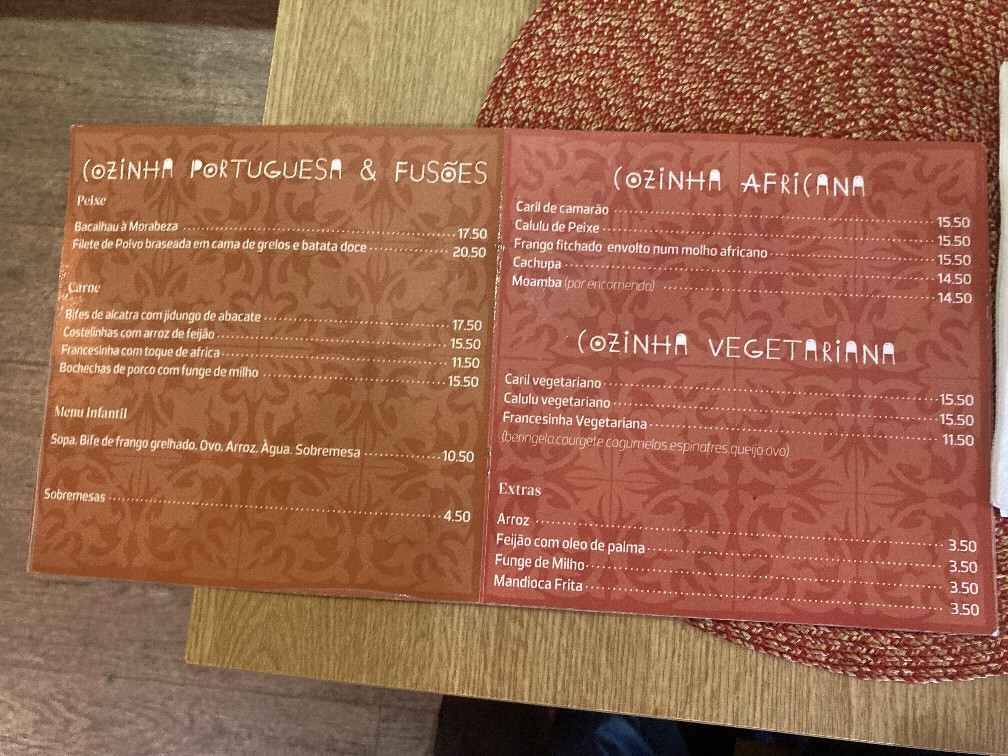 COZINHA PORTUGUESA & FUSÕES
Peixe
Bacalhau à Morabeza 17.50
Filete de Polvo braseada em cama de grelos e batata doce 20.50
Carne
Bifes de alcatra com jidungo de abacate 17.50
Costelinhas com arroz de feijão 15.50
Francesinha com toque de africa 11.50
Bochechas de porco com funge de milho 15.50
Menu Infantil
Sopa, Bife de frango grelhado, Ovo, Arroz, Àgua, Sobremesa 10,50
Sobremesas 4.50
COZINHA AFRICANA
Caril de camarão 15.50
Calulu de Peixe 15.50
Frango fitchado envolto num molho africano 15.50
Cachupa 14.50
Moamba (por encomenda) 14.50
COZINHA VEGETARIANA
Caril vegetariano 15.50
Calulu vegetariano 15.50
Francesinha Vegetariana 11.50
(beringela,courgete,cogumelos,espinafres,queijo,ovo)
Extras
Arroz 3.50
Feijão com oleo de palma 3.50
Funge de Milho 3.50
Mandioca Frita 3.50